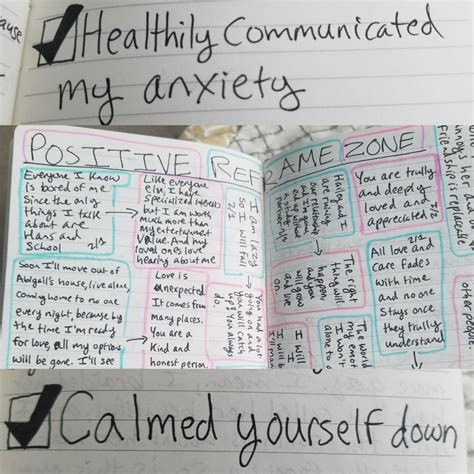 ause
Healthily Communicated
my anxiety
POSITIVE REFRAME ZONE
Everyone I know
is bored of me
Since the only
things I talk
about are
Hans and
School 2/1
Like everyone
else, I have
specialized interests
but I am worth
much more than
my entertainment
value. And my
loved ones love
hearing about me
I am lazy
so I will fail
2/1
Soon I'll move out of
Abigail's house, live alone,
coming home to no one
every night, because by
the time I'm ready
for love, all my options
will be gone. I'll see
Love is
unexpected.
It comes from
many places.
You are a
Kind and
honest person.
You had a lot
going on and
you will catch
up? You always
do.
Hailey and I
are ruining
our relationship
and I'm gonna
end up without
The right
thing will
happen,
and you
will go on
and live
You are truly
and deeply
loved and
appreciated 2/2
All love and
care fades
with time
and no one
Stays once
they truly
understand
The world
my
I won't
alone
I will
I'll
unnoys her and
friendship is replaceable
other people
Calmed yourself down